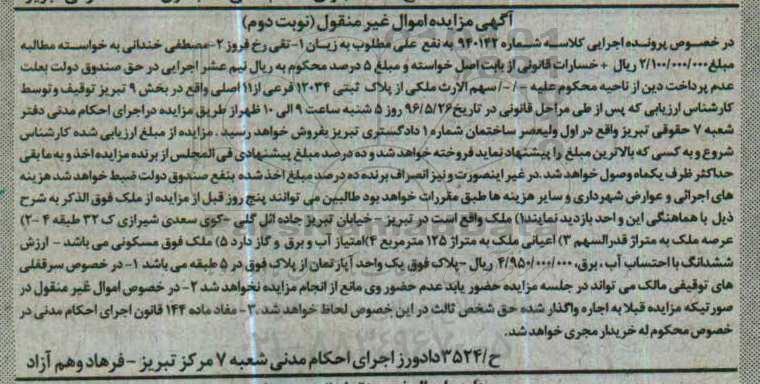 آگهی مزایده اموال غیر منقول (نوبت دوم)
در خصوص پرونده اجرایی کلاسه شماره ۹۴۰۱۴۲ به نفع علی مطلوب به زیان ۱-تقی رخ فروز ۲-مصطفی خندانی به خواسته مطالبه
مبلغ ۲/۱۰۰/۰۰۰/۰۰۰ ریال + خسارات قانونی از بابت اصل خواسته و مبلغ ۵ درصد محکوم به ریال نیم عشر اجرایی در حق صندوق دولت بعلت
عدم پرداخت دین از ناحیه محکوم علیه -/-/ سهم الارث ملکی از پلاک ثبتی ۱۲۰۳۴ فرعی از ۱۱ اصلی واقع در بخش ۹ تبریز توقیف و توسط
کارشناس ارزیابی که پس از طی مراحل قانونی در تاریخ ۹۶/۵/۲۶ روز ۵ شنبه ساعت ۹ الی ۱۰ ظهر از طریق مزایده در اجرای احکام مدنی دفتر
شعبه ۷ حقوقی تبریز واقع در اول ولیعصر ساختمان شماره ۱ دادگستری تبریز بفروش خواهد رسید . مزایده از مبلغ ارزیابی شده کارشناس
شروع و به کسی که بالاترین مبلغ را پیشنهاد نماید فروخته خواهد شد و ده درصد مبلغ پیشنهادی فی المجلس از برنده مزایده اخذ و به ما بقی
حداکثر ظرف یکماه وصول خواهد شد .در غیر اینصورت و نیز انصراف برنده ده درصد مبلغ اخذ شده بنفع صندوق دولت ضبط خواهد شد هزینه
های اجرائی و عوارض شهرداری و سایر هزینه ها طبق مقررات خواهد بود طالبین می توانند پنج روز قبل از مزایده از ملک فوق الذکر به شرح
ذیل با هماهنگی این واحد بازدید نمایند۱) ملک واقع است در تبریز - خیابان تبریز جاده ائل گلی -کوی سعدی شیرازی ک ۳۲ طبقه ۴ -۲)
عرصه ملک به متراژ قدرالسهم ۳) اعیانی ملک به متراژ ۱۲۵ متر مربع ۴)امتیاز آب و برق و گاز دارد ۵) ملک فوق مسکونی می باشد - ارزش
ششدانگ با احتساب آب ، برق، ۴/۹۵۰/۰۰۰/۰۰۰ ریال -پلاک فوق یک واحد آپارتمان از پلاک فوق در ۵ طبقه می باشد ۱- در خصوص سرقفلی
های توقیفی مالک می تواند در جلسه مزایده حضور یابد عدم حضور وی مانع از انجام مزایده نخواهد شد ۲- در خصوص اموال غیر منقول در
صورتیکه مزایده قبلا به اجاره واگذار شده حق شخص ثالث در این خصوص لحاظ خواهد شد .۳- مفاد ماده ۱۴۴ قانون اجرای احکام مدنی در
خصوص محکوم له خریدار مجری خواهد شد.
ح/۳۵۲۴ دادورز اجرای احکام مدنی شعبه ۷ مرکز تبریز - فرهاد وهم آزاد